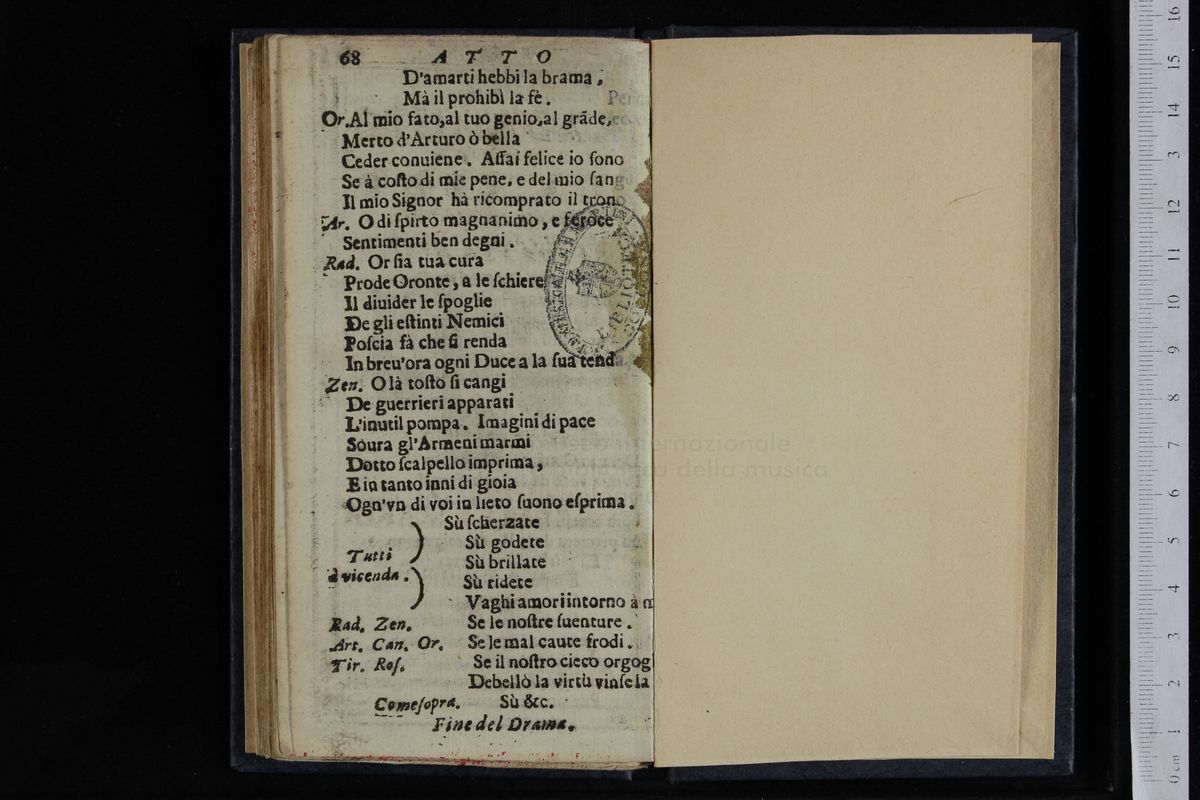 68 ATTO
D'amarti hebbi la brama,
Mà il prohibì la fè.
Or. Al mio fato, al tuo genio, al grãde,
Merto d'Arturo ò bella
Ceder conuiene. Aſſai felice io ſono
Se à coſto di mie pene, e del mio ſang
Il mio Signor hà ricomprato il trono
Ar. O di ſpirto magnanimo, e feroce
Sentimenti ben degni.
Rad. Or ſia tua cura
Prode Oronte, a le ſchiere
Il diuider le ſpoglie
De gli eſtinti Nemici
Poſcia fà che ſi renda
In breu'ora ogni Duce a la ſua tenda
Zen. O là toſto ſi cangi
De guerrieri apparati
L'inutil pompa. Imagini di pace
Soura gl'Armeni marmi
Dotto ſcalpello imprima,
E in tanto inni di gioia
Ogn'vn di voi in lieto ſuono eſprima.
Sù ſcherzate
Sù godete
Tutti
Sù brillate
à vicenda.
Sù ridete
Vaghi amori intorno à
Rad. Zen. Se le noſtre ſuenture.
Art. Can. Or. Se le mal caute frodi.
Tir. Roſ. Se il noſtro cieco orgog
Debellò la virtù vinſe la
Come ſopra. Sù &c.
Fine del Drama.
internazionale
della musica
0 cm 1 2 3 4 5 6 7 8 9 10 11 12 13 14 15 16